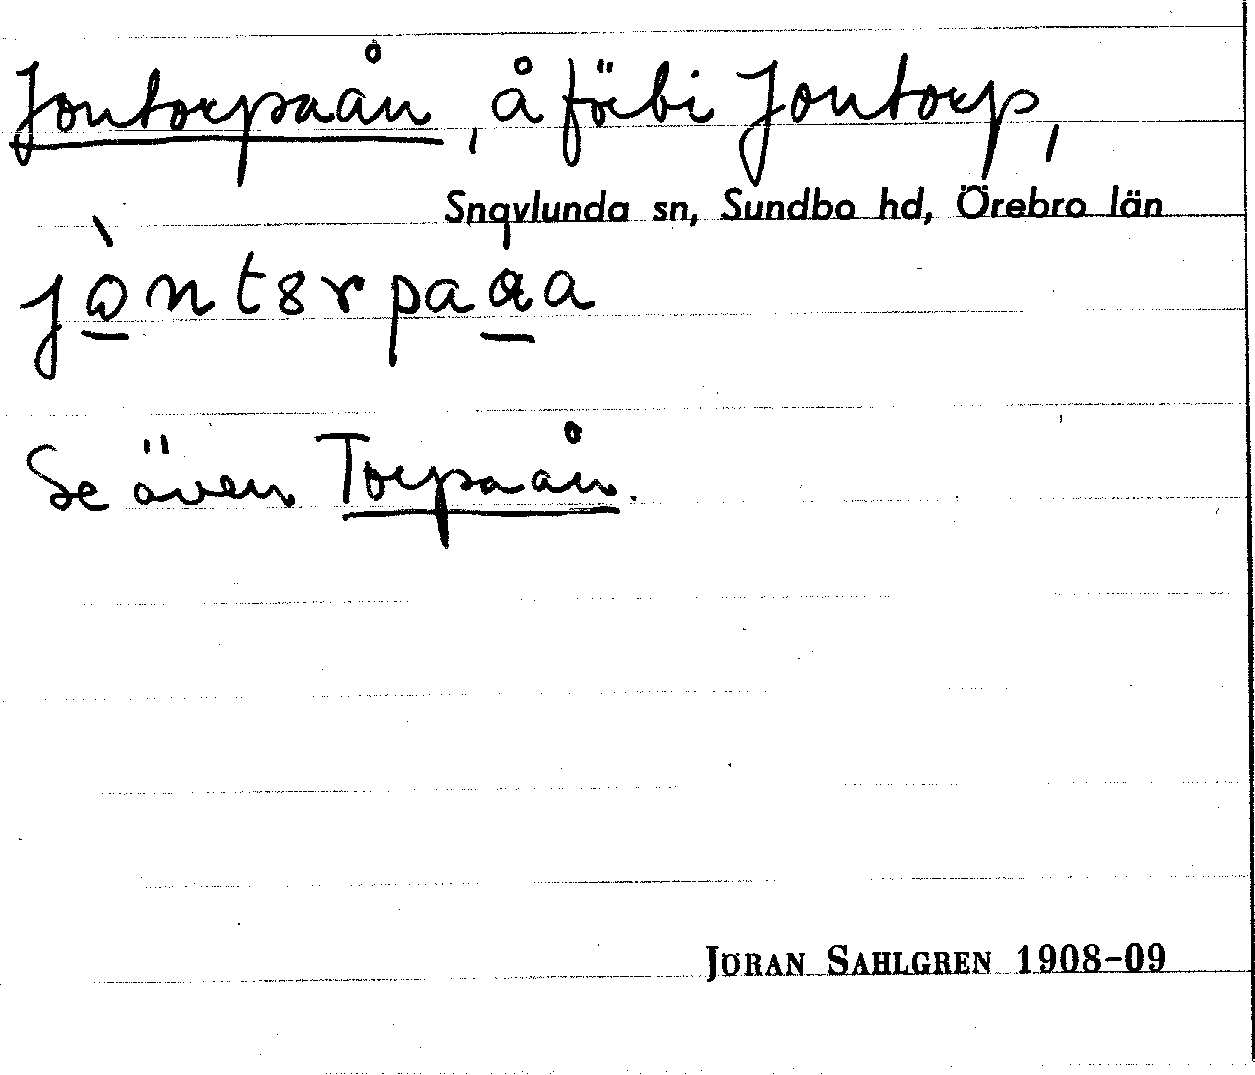 Jontorpaån, å förbi Jontorp,
Snavlunda sn, Sundbo hd, Örebro län
Se även Torpaån.
JÖRAN SAHLGREN 1908-09